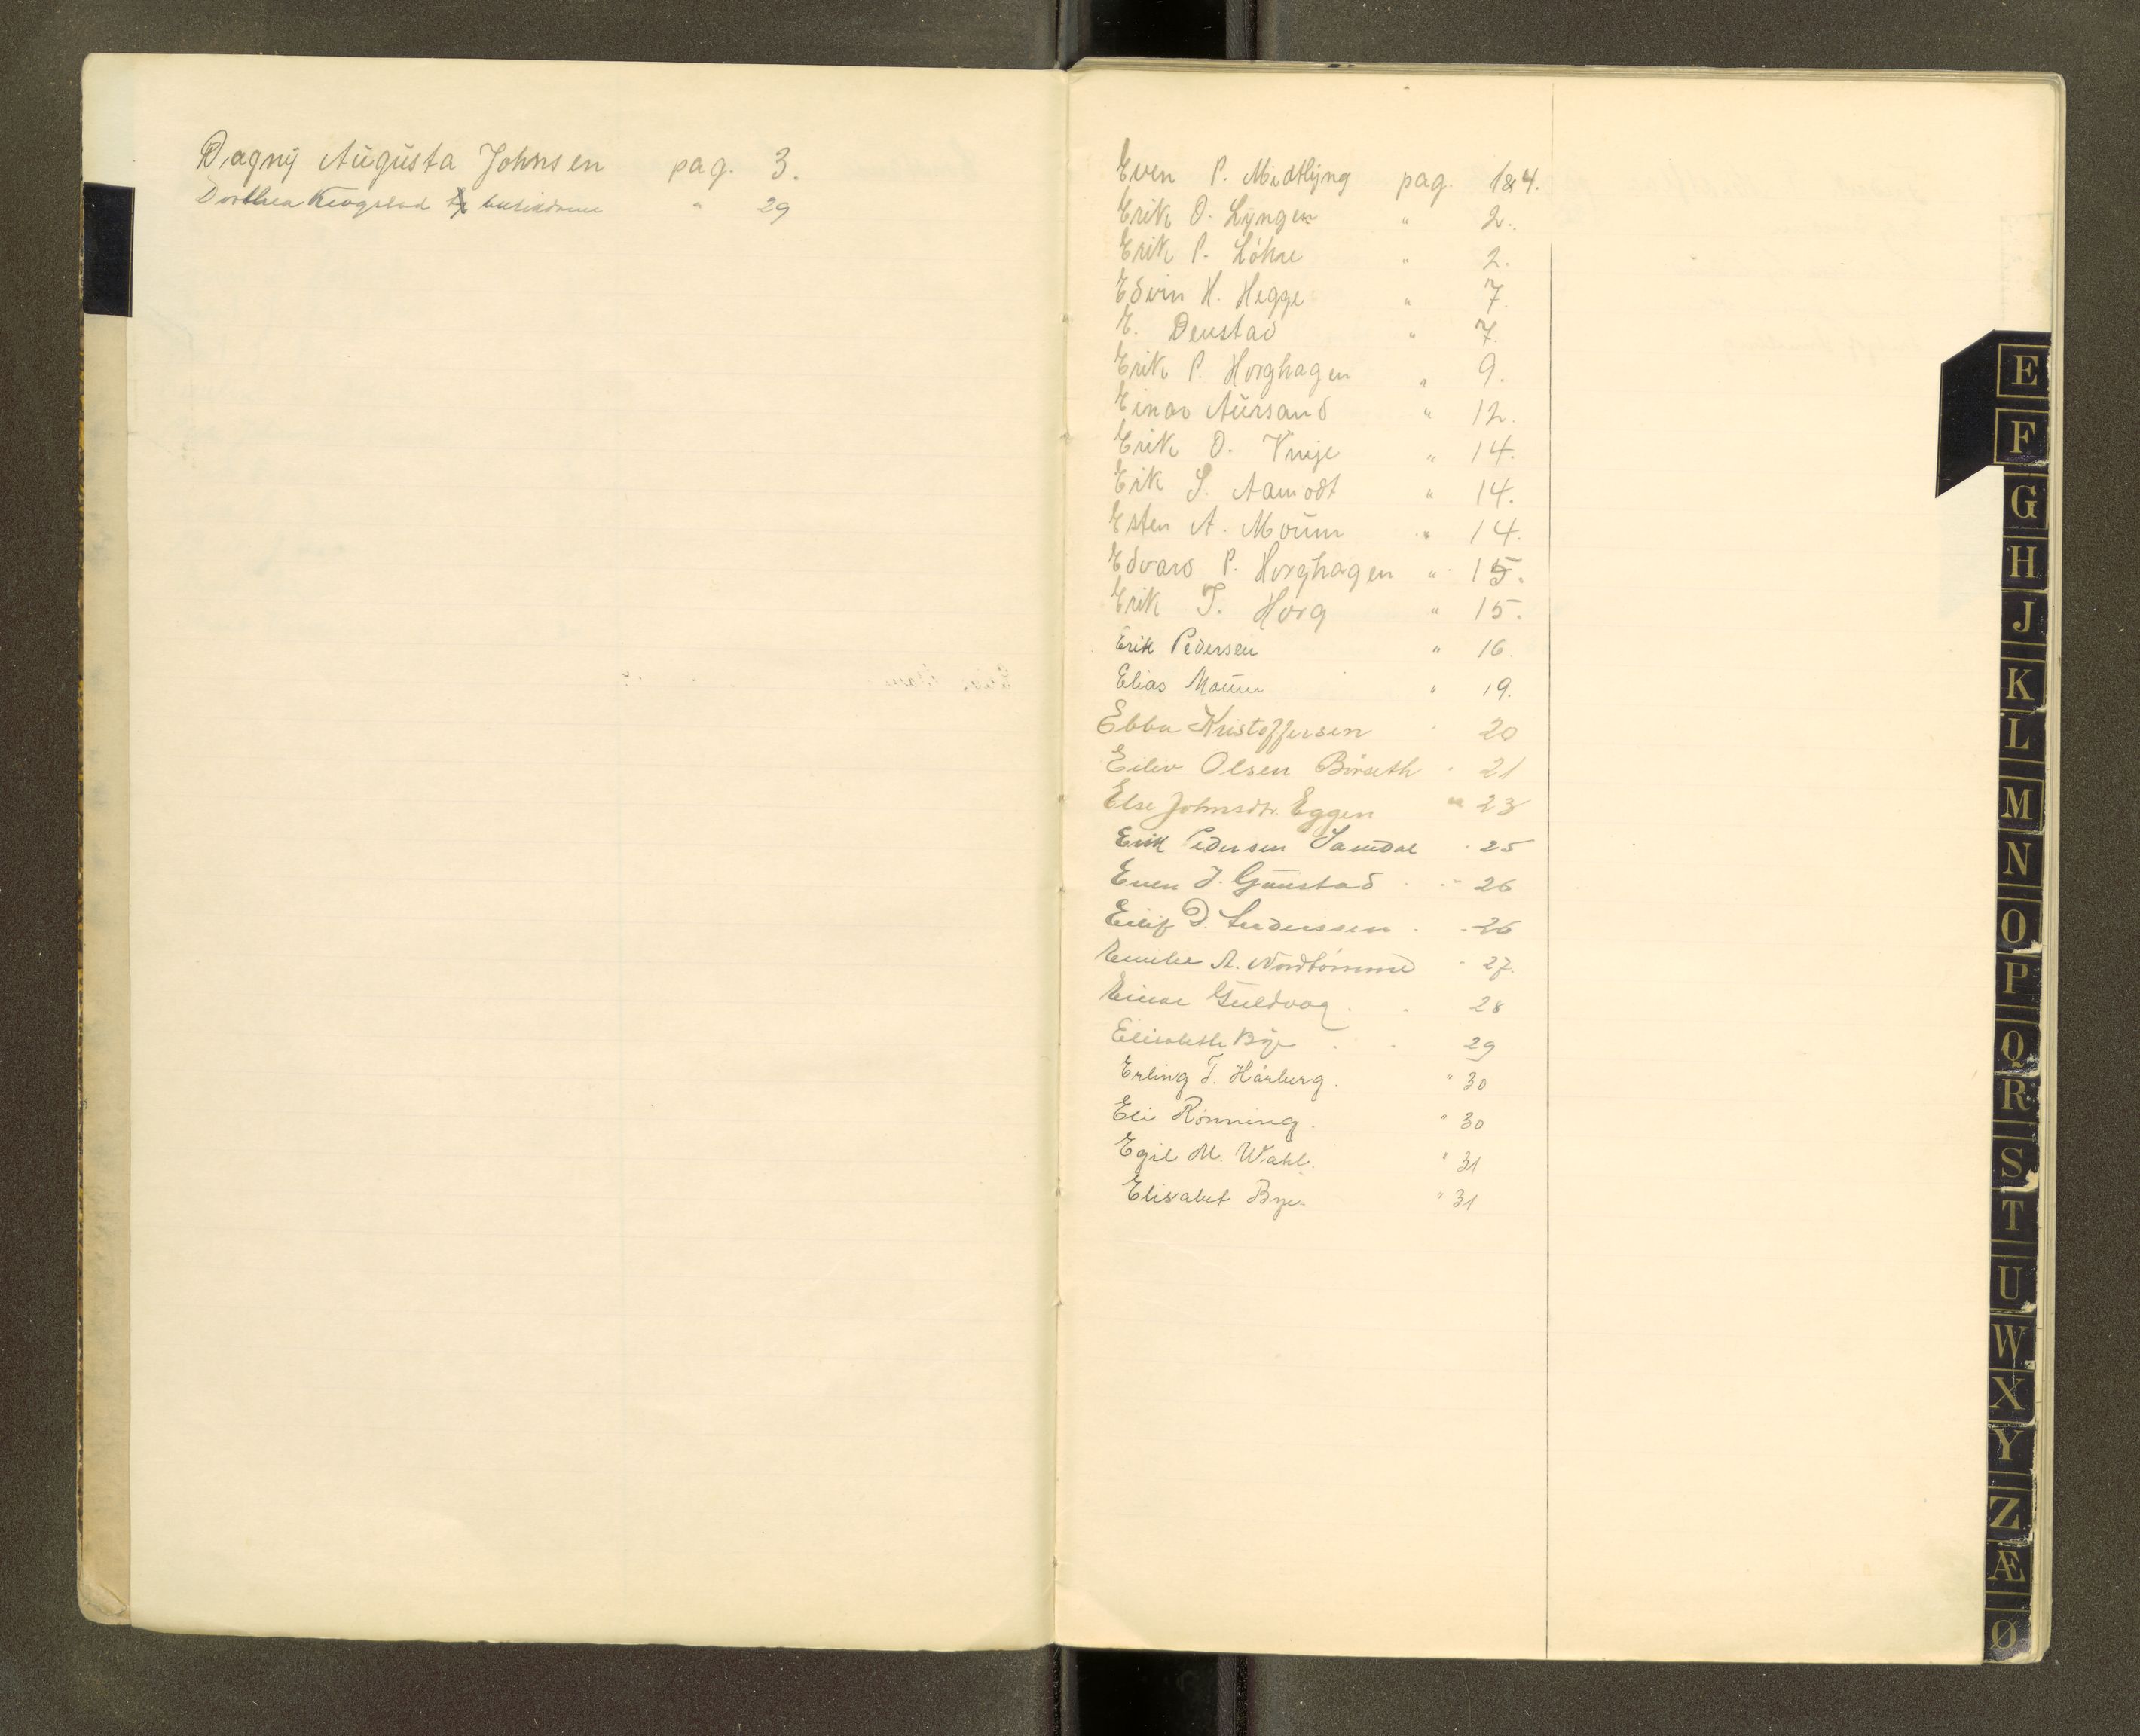 Dagny Augusta Johnsen pag. 3.
Dorthea " 29
Even P. Midtlyng pag. 1&4.
Erik O. Lyngen " 2.
Erik P. Löhre " 2.
Edvin H. Hegge " 7.
E. Devstad " 7.
Erik P. Horghagen " 9.
Einar Aursand " 12.
Erik O. Vinje " 14.
Erik S. Aamodt " 14.
Esten A. Moum " 14.
Edvard P. Horghagen " 15.
Erik T. Horg " 15.
Erik Pedersen " 16.
Elias Moum " 19.
Ebba Kristoffersen " 20
Eiliv Olsen Börseth " 21
Else Johnsdtr. Eggen " 23
Erik Pedersen Samdal " 25
Even J. Gaustad " 26
Eilif D. Anderssen " 26
Emilie A. Nordtömme " 27.
Einar Guldvog " 28
Elisabeth Bye " 29
Erling T. Hårberg. " 30
Eli Rönning. " 30
Egil M. Wahl. " 31
Elisabet Bye. " 31
E
F
G
H
J
K
L
M
N
O
P
Q
R
S
T
U
W
X
Y
Z
Æ
Ø